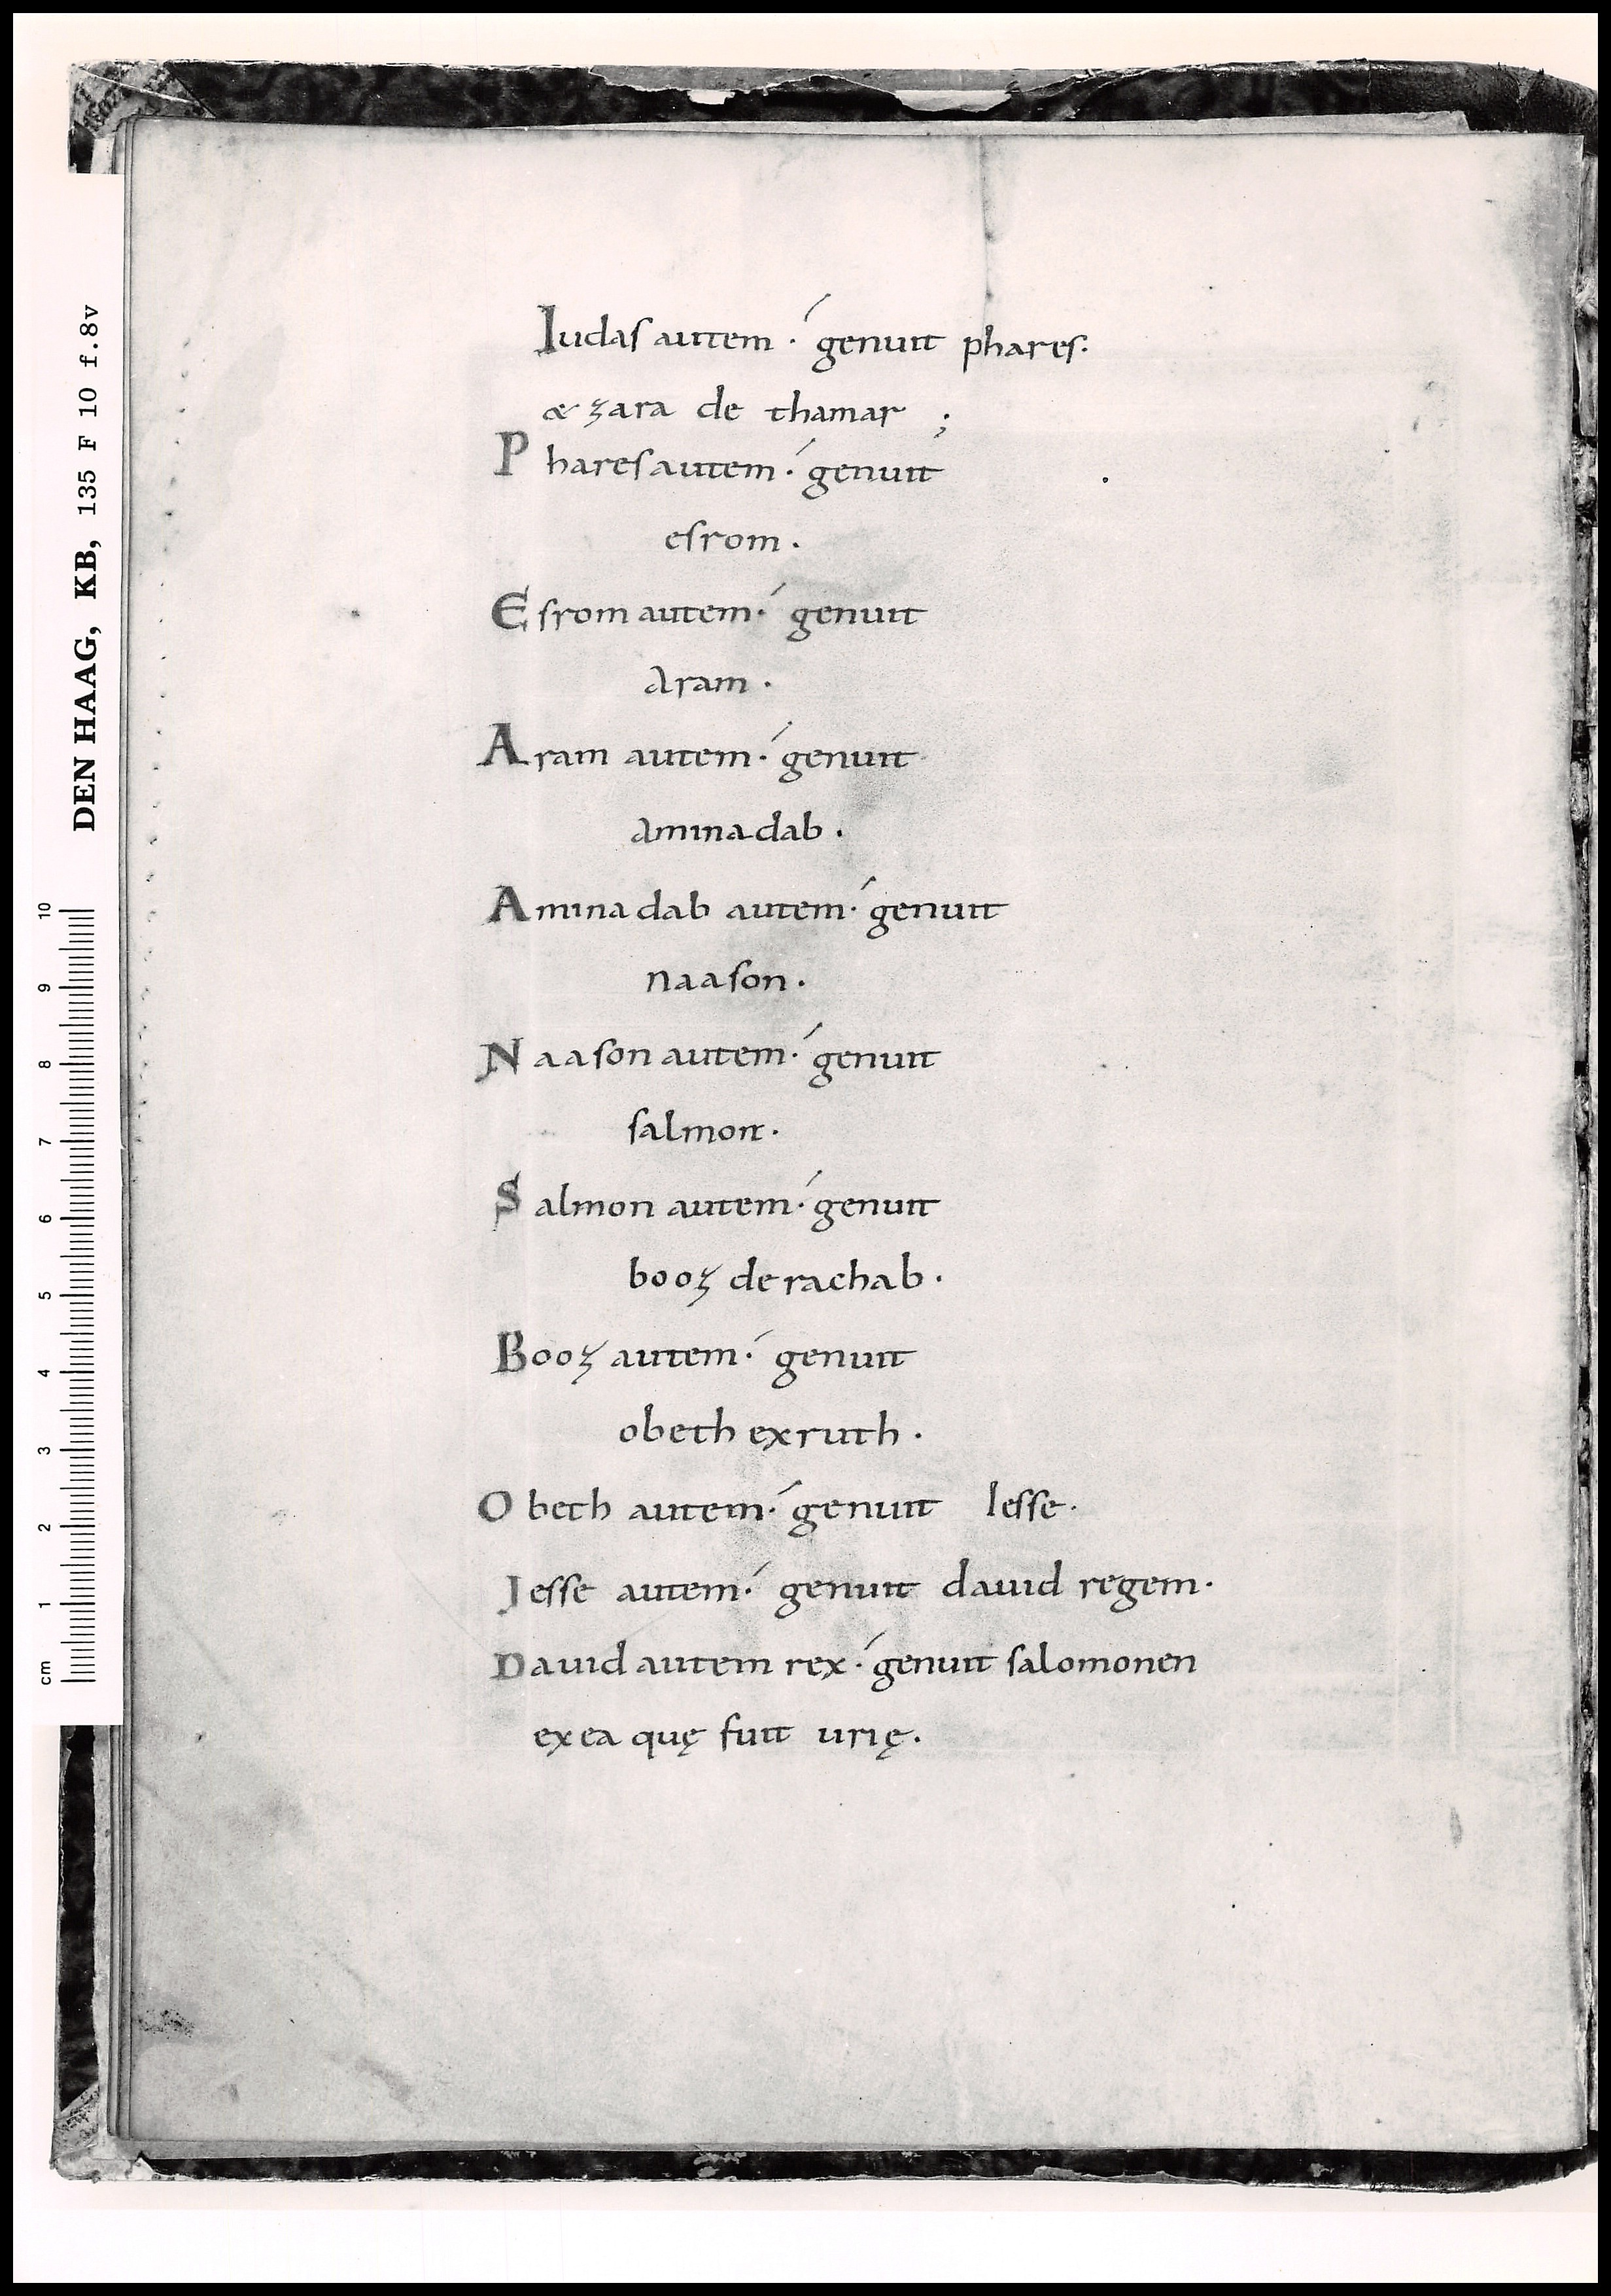 DEN HAAG, KB, 135 F 10 f.8v
10 9 8 7 6 5 4 3 2 1 cm
Iudaſ autem · genuit phareſ·
& zara de thamar ;
Phareſ autem · genuit
eſrom ·
Eſrom autem · genuit
Aram ·
Aram autem · genuit
Aminadab ·
Aminadab autem · genuit
naaſon ·
Naaſon autem · genuit
ſalmon ·
Salmon autem · genuit
booz de rachab ·
Booz autem · genuit
obeth ex ruth ·
Obeth autem · genuit Ieſſe ·
Ieſſe autem · genuit dauid regem ·
Dauid autem rex · genuit ſalomonen
ex ea quę fuit urię ·